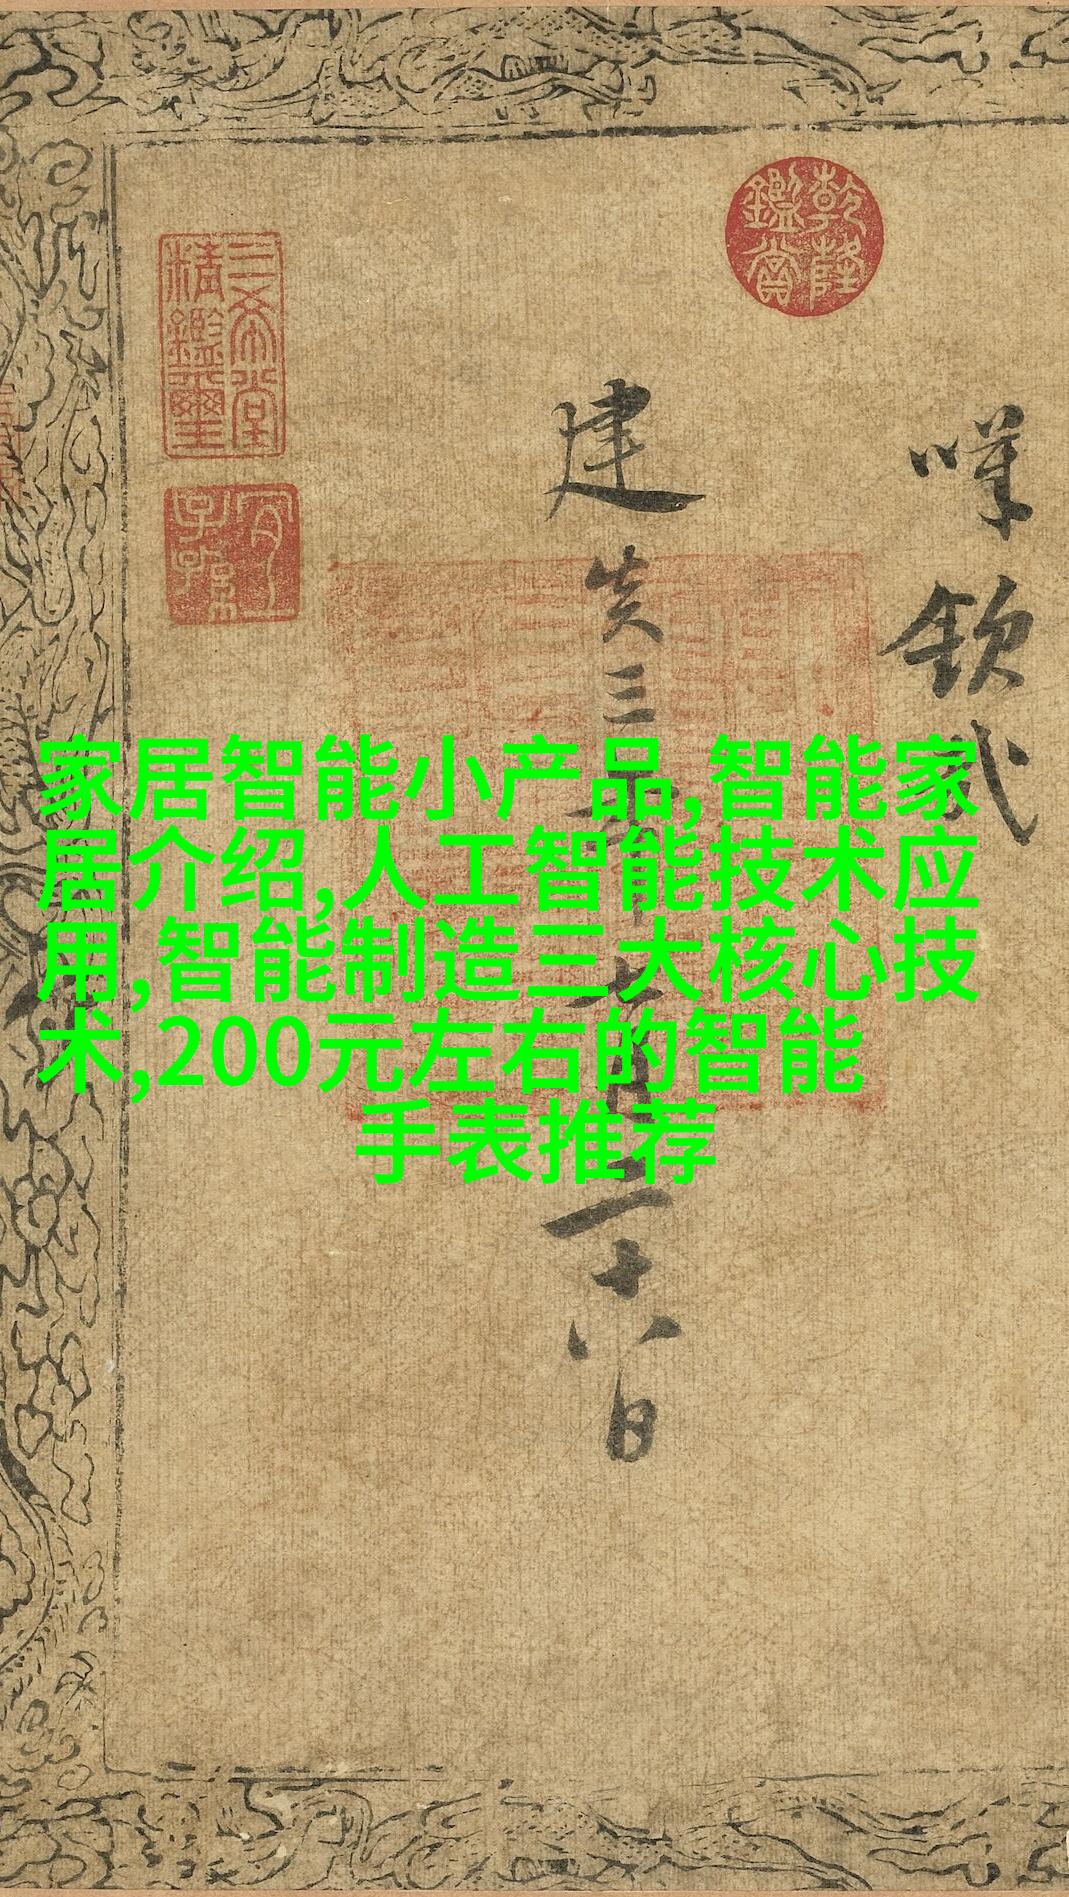 乾隆
鑑賞
三希堂
精鑑璽
宜
子孫
欽哉
建炎三年七月二十八日
家居智能小产品,智能家
居介绍,人工智能技术应
用,智能制造三大核心技
术,200元左右的智能
手表推荐